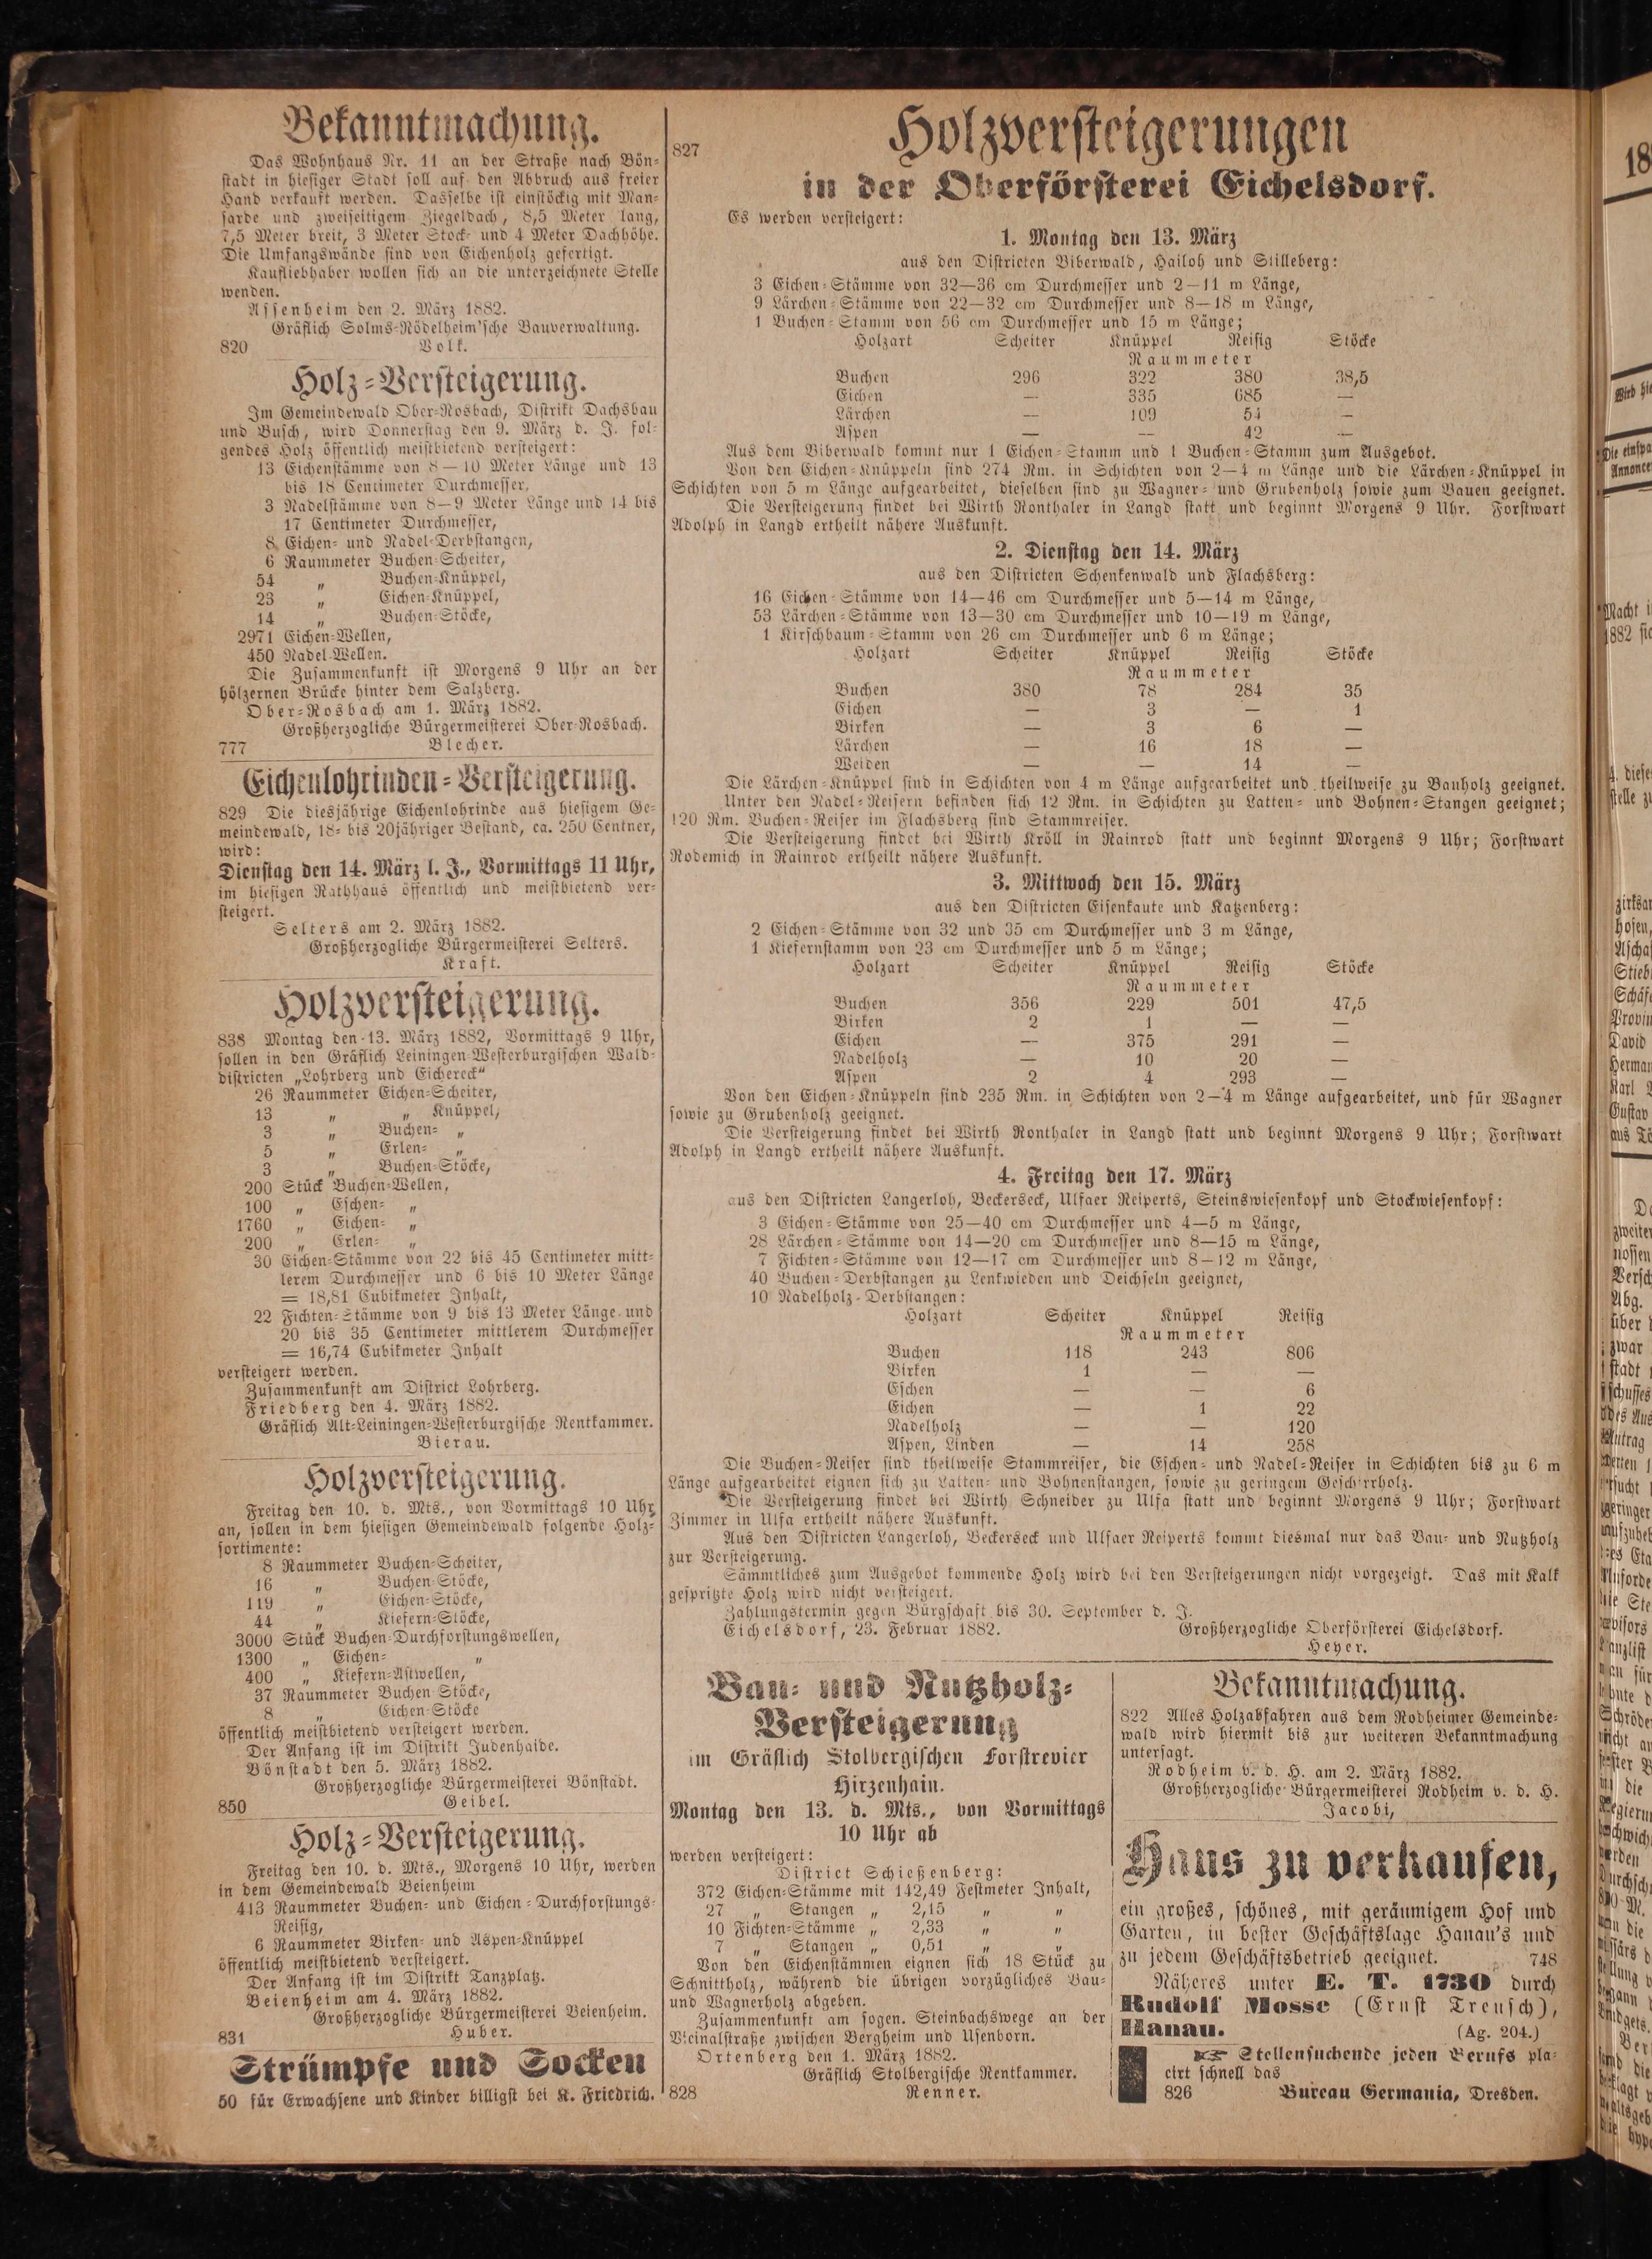 Bekanntmachung.
Das Wohnhaus Nr. 11 an der Straße nach Bön-
stadt in hiesiger Stadt soll auf den Abbruch aus freier
Hand verkauft werden. Dasselbe ist einstöckig mit Man-
sarde und zweiseitigem Ziegeldach, 8,5 Meter lang,
7,5 Meter breit, 3 Meter Stock- und 4 Meter Dachhöhe.
Die Umfangswände sind von Eichenholz gefertigt.
Kaufliebhaber wollen sich an die unterzeichnete Stelle
wenden.
Assenheim den 2. März 1882.
Gräflich Solms-Rödelheim'sche Bauverwaltung.
820 Volk.
Holz-Versteigerung.
Im Gemeindewald Ober-Rosbach, Distrikt Dachsbau
und Busch, wird Donnerstag den 9. März d. J. fol-
gendes Holz öffentlich meistbietend versteigert:
13 Eichenstämme von 8—10 Meter Länge und 13
bis 18 Centimeter Durchmesser,
3 Nadelstämme von 8—9 Meter Länge und 14 bis
17 Centimeter Durchmesser,
8 Eichen- und Nadel-Derbstangen,
6 Raummeter Buchen-Scheiter,
54 „ Buchen-Knüppel,
23 „ Eichen-Knüppel,
14 „ Buchen-Stöcke,
2971 Eichen-Wellen,
450 Nadel-Wellen.
Die Zusammenkunft ist Morgens 9 Uhr an der
hölzernen Brücke hinter dem Salzberg.
Ober-Rosbach am 1. März 1882.
Großherzogliche Bürgermeisterei Ober-Rosbach.
777 Blecher.
Eichenlohrinden-Versteigerung.
829 Die diesjährige Eichenlohrinde aus hiesigem Ge-
meindewald, 18- bis 20jähriger Bestand, ca. 250 Centner,
wird:
Dienstag den 14. März l. J., Vormittags 11 Uhr,
im hiesigen Rathhaus öffentlich und meistbietend ver-
steigert.
Selters am 2. März 1882.
Großherzogliche Bürgermeisterei Selters.
Kraft.
Holzversteigerung.
838 Montag den 13. März 1882, Vormittags 9 Uhr,
sollen in den Gräflich Leiningen-Westerburgischen Wald-
districten „Lohrberg und Eichereck“
26 Raummeter Eichen-Scheiter,
13 „ „ Knüppel,
3 „ Buchen- „
5 „ Erlen- „
3 „ Buchen-Stöcke,
200 Stück Buchen-Wellen,
100 „ Eschen- „
1760 „ Eichen- „
200 „ Erlen- „
30 Eichen-Stämme von 22 bis 45 Centimeter mitt-
lerem Durchmesser und 6 bis 10 Meter Länge
= 18,81 Cubikmeter Inhalt,
22 Fichten-Stämme von 9 bis 13 Meter Länge und
20 bis 35 Centimeter mittlerem Durchmesser
= 16,74 Cubikmeter Inhalt
versteigert werden.
Zusammenkunft am District Lohrberg.
Friedberg den 4. März 1882.
Gräflich Alt-Leiningen-Westerburgische Rentkammer.
Bierau.
Holzversteigerung.
Freitag den 10. d. Mts., von Vormittags 10 Uhr
an, sollen in dem hiesigen Gemeindewald folgende Holz-
sortimente:
8 Raummeter Buchen-Scheiter,
16 „ Buchen-Stöcke,
119 „ Eichen-Stöcke,
44 „ Kiefern-Stöcke,
3000 Stück Buchen-Durchforstungswellen,
1300 „ Eichen- „
400 „ Kiefern-Astwellen,
37 Raummeter Buchen-Stöcke,
8 „ Eichen-Stöcke
öffentlich meistbietend versteigert werden.
Der Anfang ist im Distrikt Judenhaide.
Bönstadt den 5. März 1882.
Großherzogliche Bürgermeisterei Bönstadt.
850 Geibel.
Holz-Versteigerung.
Freitag den 10. d. Mts., Morgens 10 Uhr, werden
in dem Gemeindewald Beienheim
413 Raummeter Buchen- und Eichen-Durchforstungs-
Reisig,
6 Raummeter Birken- und Aspen-Knüppel
öffentlich meistbietend versteigert.
Der Anfang ist im Distrikt Tanzplatz.
Beienheim am 4. März 1882.
Großherzogliche Bürgermeisterei Beienheim.
831 Huber.
Strümpfe und Socken
50 für Erwachsene und Kinder billigst bei K. Friedrich.
827
Holzversteigerungen
in der Oberförsterei Eichelsdorf.
Es werden versteigert:
1. Montag den 13. März
aus den Districten Biberwald, Hailoh und Stilleberg:
3 Eichen-Stämme von 32—36 cm Durchmesser und 2—11 m Länge,
9 Lärchen-Stämme von 22—32 cm Durchmesser und 8—18 m Länge,
1 Buchen-Stamm von 56 cm Durchmesser und 15 m Länge;
Holzart Scheiter Knüppel Reisig Stöcke
Raummeter
Buchen 296 322 380 38,5
Eichen — 335 685 —
Lärchen — 109 54 —
Aspen — — 42 —
Aus dem Biberwald kommt nur 1 Eichen-Stamm und 1 Buchen-Stamm zum Ausgebot.
Von den Eichen-Knüppeln sind 274 Rm. in Schichten von 2—4 m Länge und die Lärchen-Knüppel in
Schichten von 5 m Länge aufgearbeitet, dieselben sind zu Wagner- und Grubenholz sowie zum Bauen geeignet.
Die Versteigerung findet bei Wirth Ronthaler in Langd statt und beginnt Morgens 9 Uhr. Forstwart
Adolph in Langd ertheilt nähere Auskunft.
2. Dienstag den 14. März
aus den Districten Schenkenwald und Flachsberg:
16 Eichen-Stämme von 14—46 cm Durchmesser und 5—14 m Länge,
53 Lärchen-Stämme von 13—30 cm Durchmesser und 10—19 m Länge,
1 Kirschbaum-Stamm von 26 cm Durchmesser und 6 m Länge;
Holzart Scheiter Knüppel Reisig Stöcke
Raummeter
Buchen 380 78 284 35
Eichen — 3 — 1
Birken — 3 6 —
Lärchen — 16 18 —
Weiden — — 14 —
Die Lärchen-Knüppel sind in Schichten von 4 m Länge aufgearbeitet und theilweise zu Bauholz geeignet.
Unter den Nadel-Reisern befinden sich 12 Rm. in Schichten zu Latten- und Bohnen-Stangen geeignet;
120 Rm. Buchen-Reiser im Flachsberg sind Stammreiser.
Die Versteigerung findet bei Wirth Kröll in Rainrod statt und beginnt Morgens 9 Uhr; Forstwart
Rodemich in Rainrod ertheilt nähere Auskunft.
3. Mittwoch den 15. März
aus den Districten Eisenkaute und Katzenberg:
2 Eichen-Stämme von 32 und 35 cm Durchmesser und 3 m Länge,
1 Kiefernstamm von 23 cm Durchmesser und 5 m Länge;
Holzart Scheiter Knüppel Reisig Stöcke
Raummeter
Buchen 356 229 501 47,5
Birken 2 1 — —
Eichen — 375 291 —
Nadelholz — 10 20 —
Aspen 2 4 293 —
Von den Eichen-Knüppeln sind 235 Rm. in Schichten von 2—4 m Länge aufgearbeitet, und für Wagner
sowie zu Grubenholz geeignet.
Die Versteigerung findet bei Wirth Ronthaler in Langd statt und beginnt Morgens 9 Uhr; Forstwart
Adolph in Langd ertheilt nähere Auskunft.
4. Freitag den 17. März
aus den Districten Langerloh, Beckerseck, Ulfaer Reiperts, Steinswiesenkopf und Stockwiesenkopf:
3 Eichen-Stämme von 25—40 cm Durchmesser und 4—5 m Länge,
28 Lärchen-Stämme von 14—20 cm Durchmesser und 8—15 m Länge,
7 Fichten-Stämme von 12—17 cm Durchmesser und 8—12 m Länge,
40 Buchen-Derbstangen zu Lenkwieden und Deichseln geeignet,
10 Nadelholz-Derbstangen:
Holzart Scheiter Knüppel Reisig
Raummeter
Buchen 118 243 806
Birken 1 — —
Eschen — — 6
Eichen — 1 22
Nadelholz — — 120
Aspen, Linden — 14 258
Die Buchen-Reiser sind theilweise Stammreiser, die Eschen- und Nadel-Reiser in Schichten bis zu 6 m
Länge aufgearbeitet eignen sich zu Latten- und Bohnenstangen, sowie zu geringem Geschirrholz.
Die Versteigerung findet bei Wirth Schneider zu Ulfa statt und beginnt Morgens 9 Uhr; Forstwart
Zimmer in Ulfa ertheilt nähere Auskunft.
Aus den Districten Langerloh, Beckerseck und Ulfaer Reiperts kommt diesmal nur das Bau- und Nutzholz
zur Versteigerung.
Sämmtliches zum Ausgebot kommende Holz wird bei den Versteigerungen nicht vorgezeigt. Das mit Kalk
gespritzte Holz wird nicht versteigert.
Zahlungstermin gegen Bürgschaft bis 30. September d. J.
Eichelsdorf, 23. Februar 1882. Großherzogliche Oberförsterei Eichelsdorf.
Heyer.
Bau- und Nutzholz-
Versteigerung
im Gräflich Stolbergischen Forstrevier
Hirzenhain.
Montag den 13. d. Mts., von Vormittags
10 Uhr ab
werden versteigert:
District Schießenberg:
372 Eichen-Stämme mit 142,49 Festmeter Inhalt,
27 „ Stangen „ 2,15 „ „
10 Fichten-Stämme „ 2,33 „ „
7 „ Stangen „ 0,51 „ „
Von den Eichenstämmen eignen sich 18 Stück zu
Schnittholz, während die übrigen vorzügliches Bau-
und Wagnerholz abgeben.
Zusammenkunft am sogen. Steinbachswege an der
Vicinalstraße zwischen Bergheim und Usenborn.
Ortenberg den 1. März 1882.
Gräflich Stolbergische Rentkammer.
828 Renner.
Bekanntmachung.
822 Alles Holzabfahren aus dem Rodheimer Gemeinde-
wald wird hiermit bis zur weiteren Bekanntmachung
untersagt.
Rodheim v. d. H. am 2. März 1882.
Großherzogliche Bürgermeisterei Rodheim v. d. H.
Jacobi,
Haus zu verkaufen,
ein großes, schönes, mit geräumigem Hof und
Garten, in bester Geschäftslage Hanau's und
zu jedem Geschäftsbetrieb geeignet. 748
Näheres unter E. T. 1730 durch
Rudolf Mosse (Ernst Treusch),
Hanau. (Ag. 204.)
☞ Stellensuchende jeden Berufs pla-
cirt schnell das
826 Bureau Germania, Dresden.